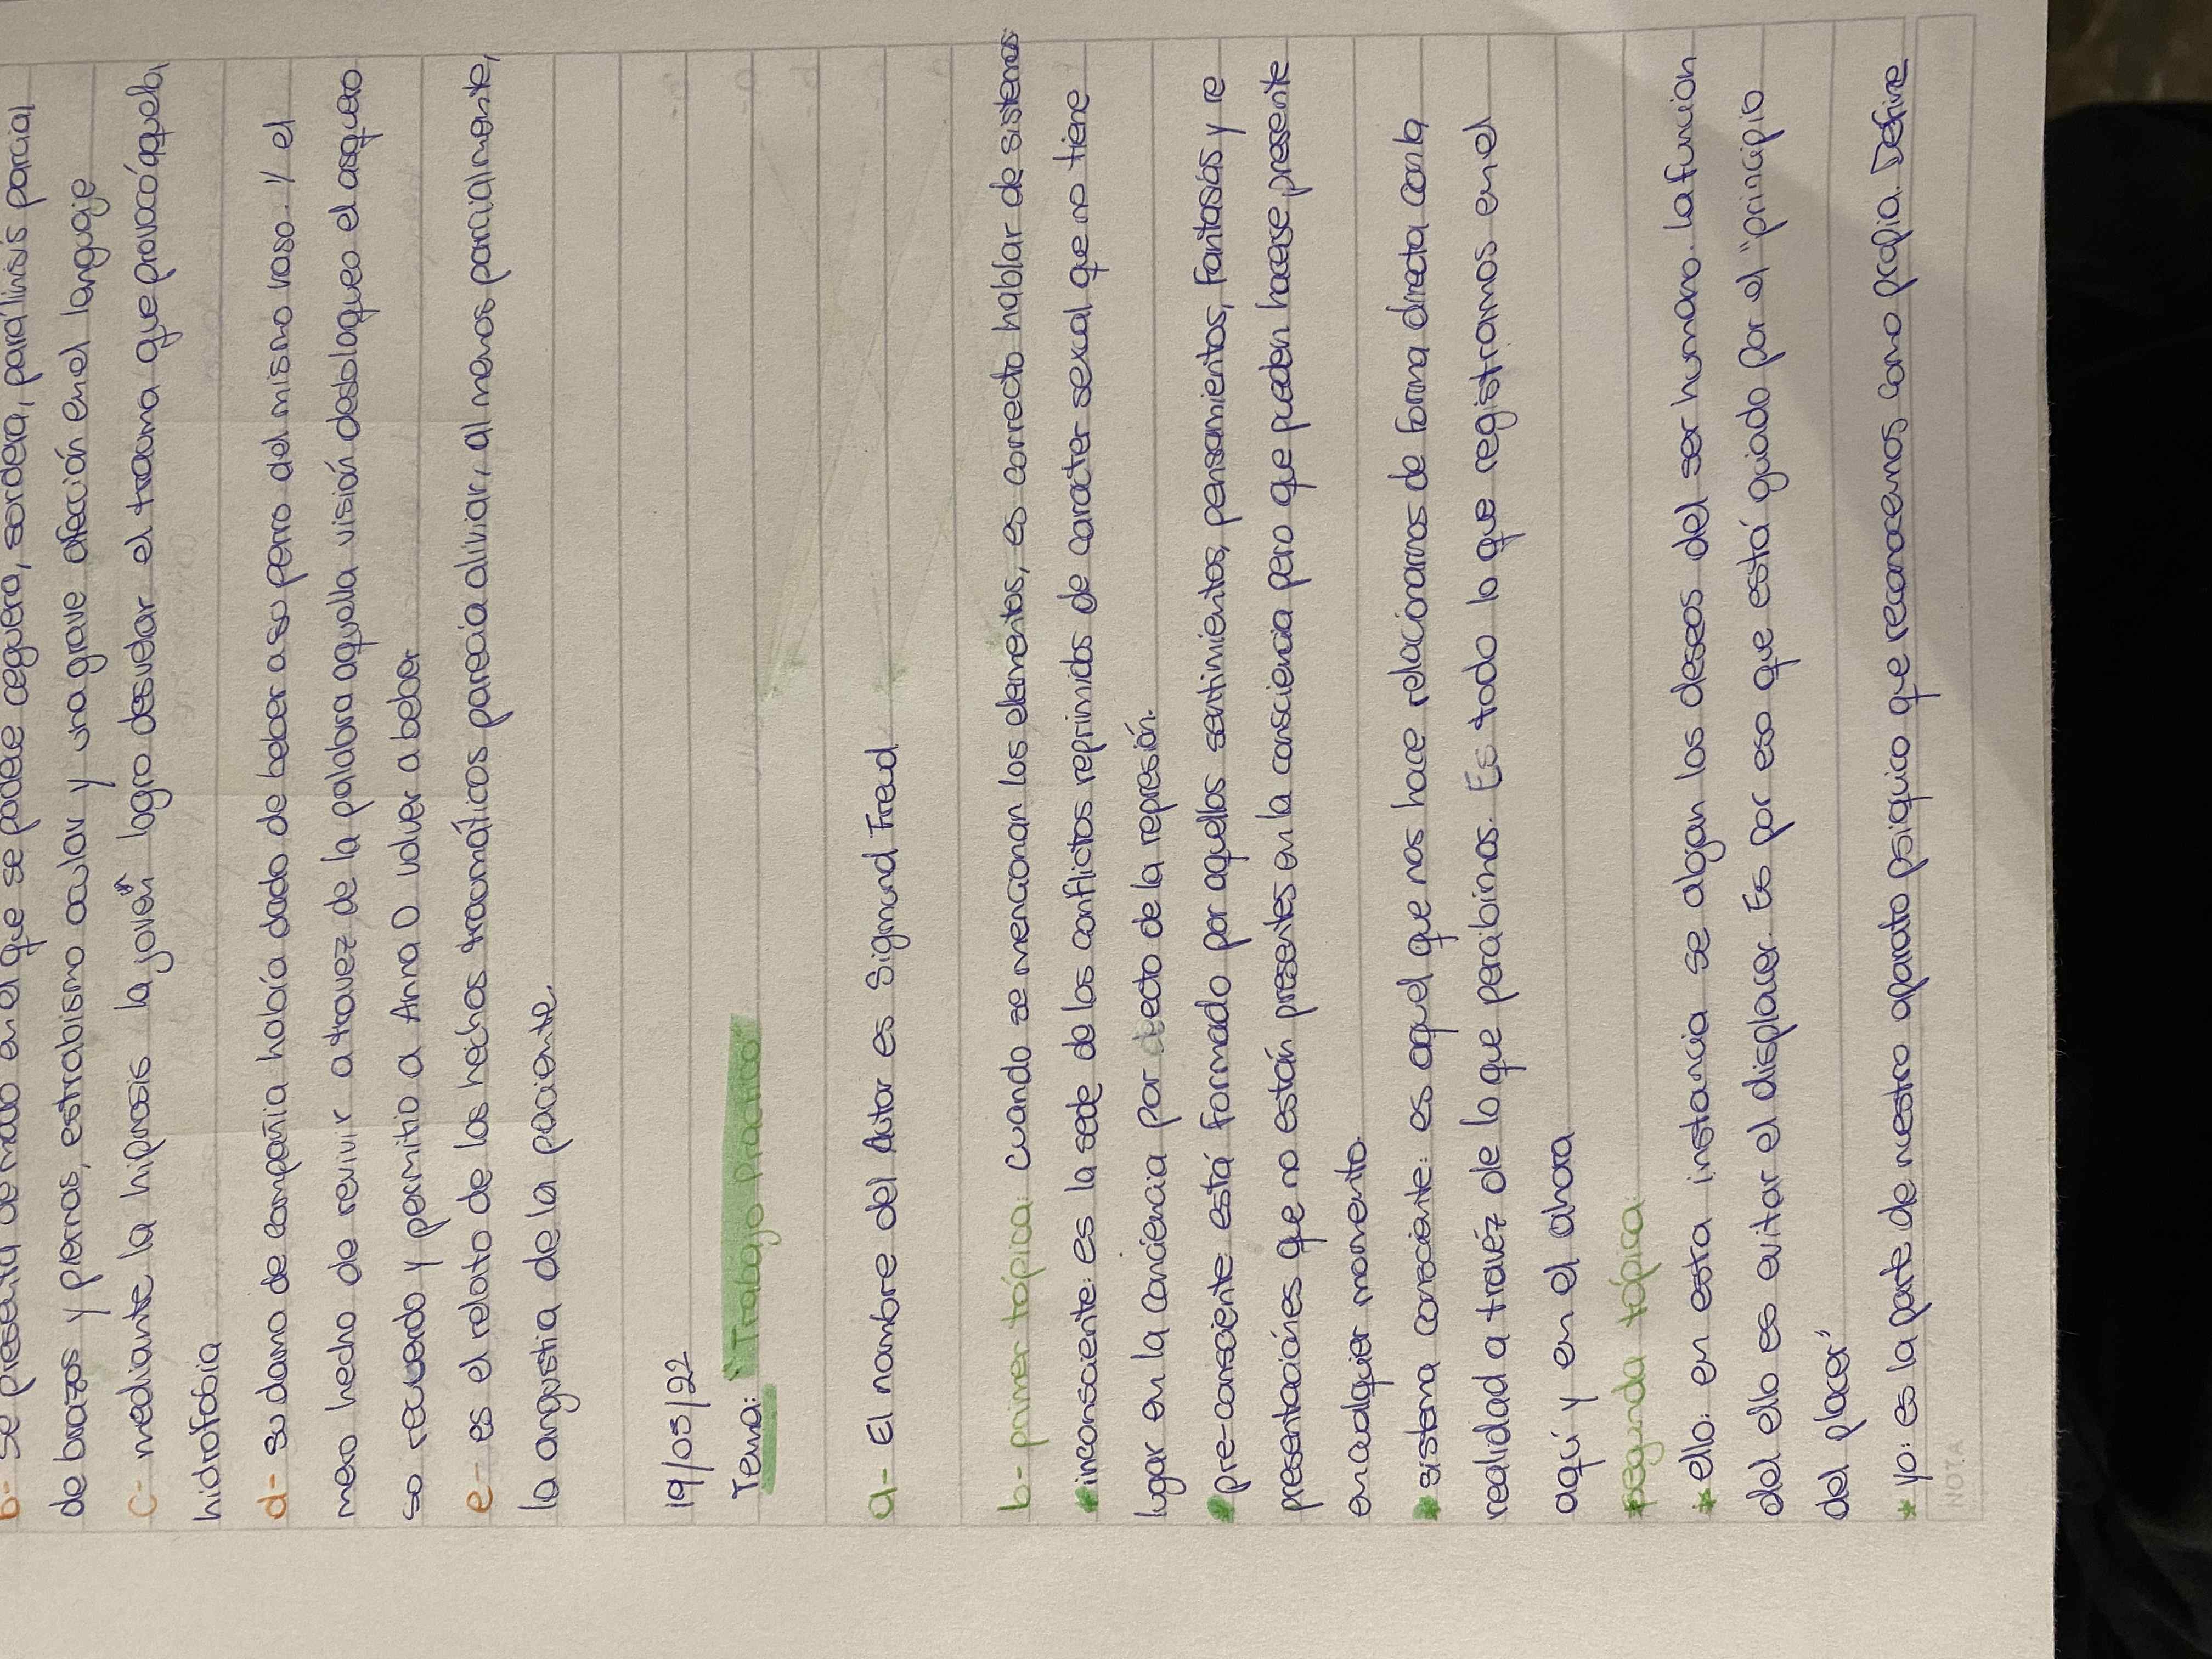 b- se presenta de modo en el que se padece ceguera, sordera, parálisis parcial
de brazos y piernas, estrabismo ocular y una grave afección en el lenguaje
c- mediante la hipnosis la joven logro desvelar el trauma que provocó aquella
hidrofobia
d- su dama de compañia había dado de beber a su perro del mismo vaso. Y el
mero hecho de revivir a travez de la palabra aquella visión desbloqueo el asqueo
so recuerdo y permitio a Anna O volver a beber
e- es el relato de los hechos traumáticos parecia aliviar, al menos parcialmente,
la angustia de la paciente.
19/05/22
Tema: "Trabajo Practico"
a- El nombre del Autor es Sigmund Freud
b- primer tópica: cuando se mencionan los elementos, es correcto hablar de sistemas
* inconsciente: es la sede de los conflictos reprimidos de caracter sexual que no tiene
lugar en la conciencia por efecto de la represión.
* pre-consciente está formado por aquellos sentimientos, pensamientos, fantasías y re
presentaciónes que no están presentes en la consciencia pero que pueden hacerse presente
en cualquier momento.
* sistema consciente: es aquel que nos hace relacionarnos de forma directa con la
realidad a travéz de lo que percibimos. Es todo lo que registramos en el
aquí y en el ahora
* segunda tópica:
* ello: en esta instancia se alojan los deseos del ser humano. La funcion
del ello es evitar el displacer. Es por eso que está guiado por el "principio
del placer"
* yo: es la parte de nuestro aparato psiquico que reconocemos como propia. Define
NOTA